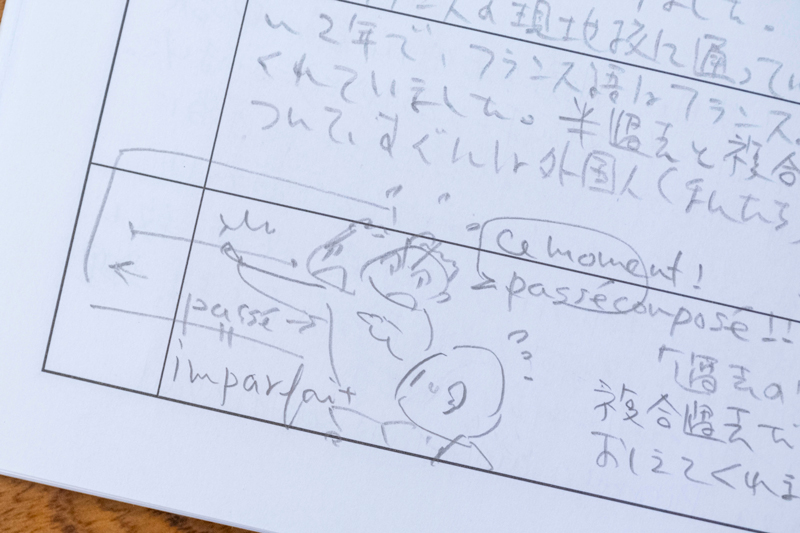 の現地校に通ってい
い2年で、フランス語は フランス
くれていました。半過去と複合
ついて、すぐんは外国人(
ce moment!
→ passé composé!!
passé →
imparfait
「過去の
複合過去で
おしえてくれま